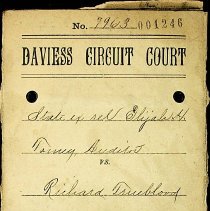 No. 7963 001246
DAVIESS CIRCUIT COURT
State ex rel Elijah H.
vs.
Richard Trueblood